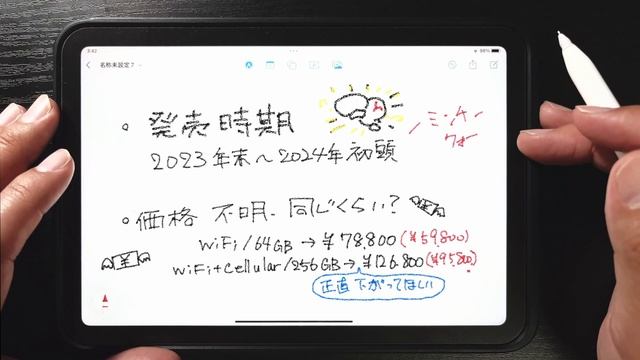 9:42
98%
名称未設定 7
。発売時期
ミ・ナー
ウォー
2023年末〜2024年初頭
。価格 不明、同じくらい?
¥
WiFi/64GB→¥78,800(¥59,800)
WiFi+Cellular/256GB→¥126,800(¥95,800)
正直下がってほしい